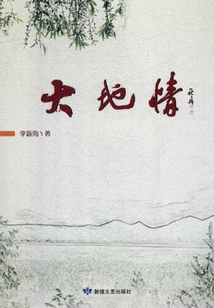 大地情
李新海\著
敦煌文艺出版社